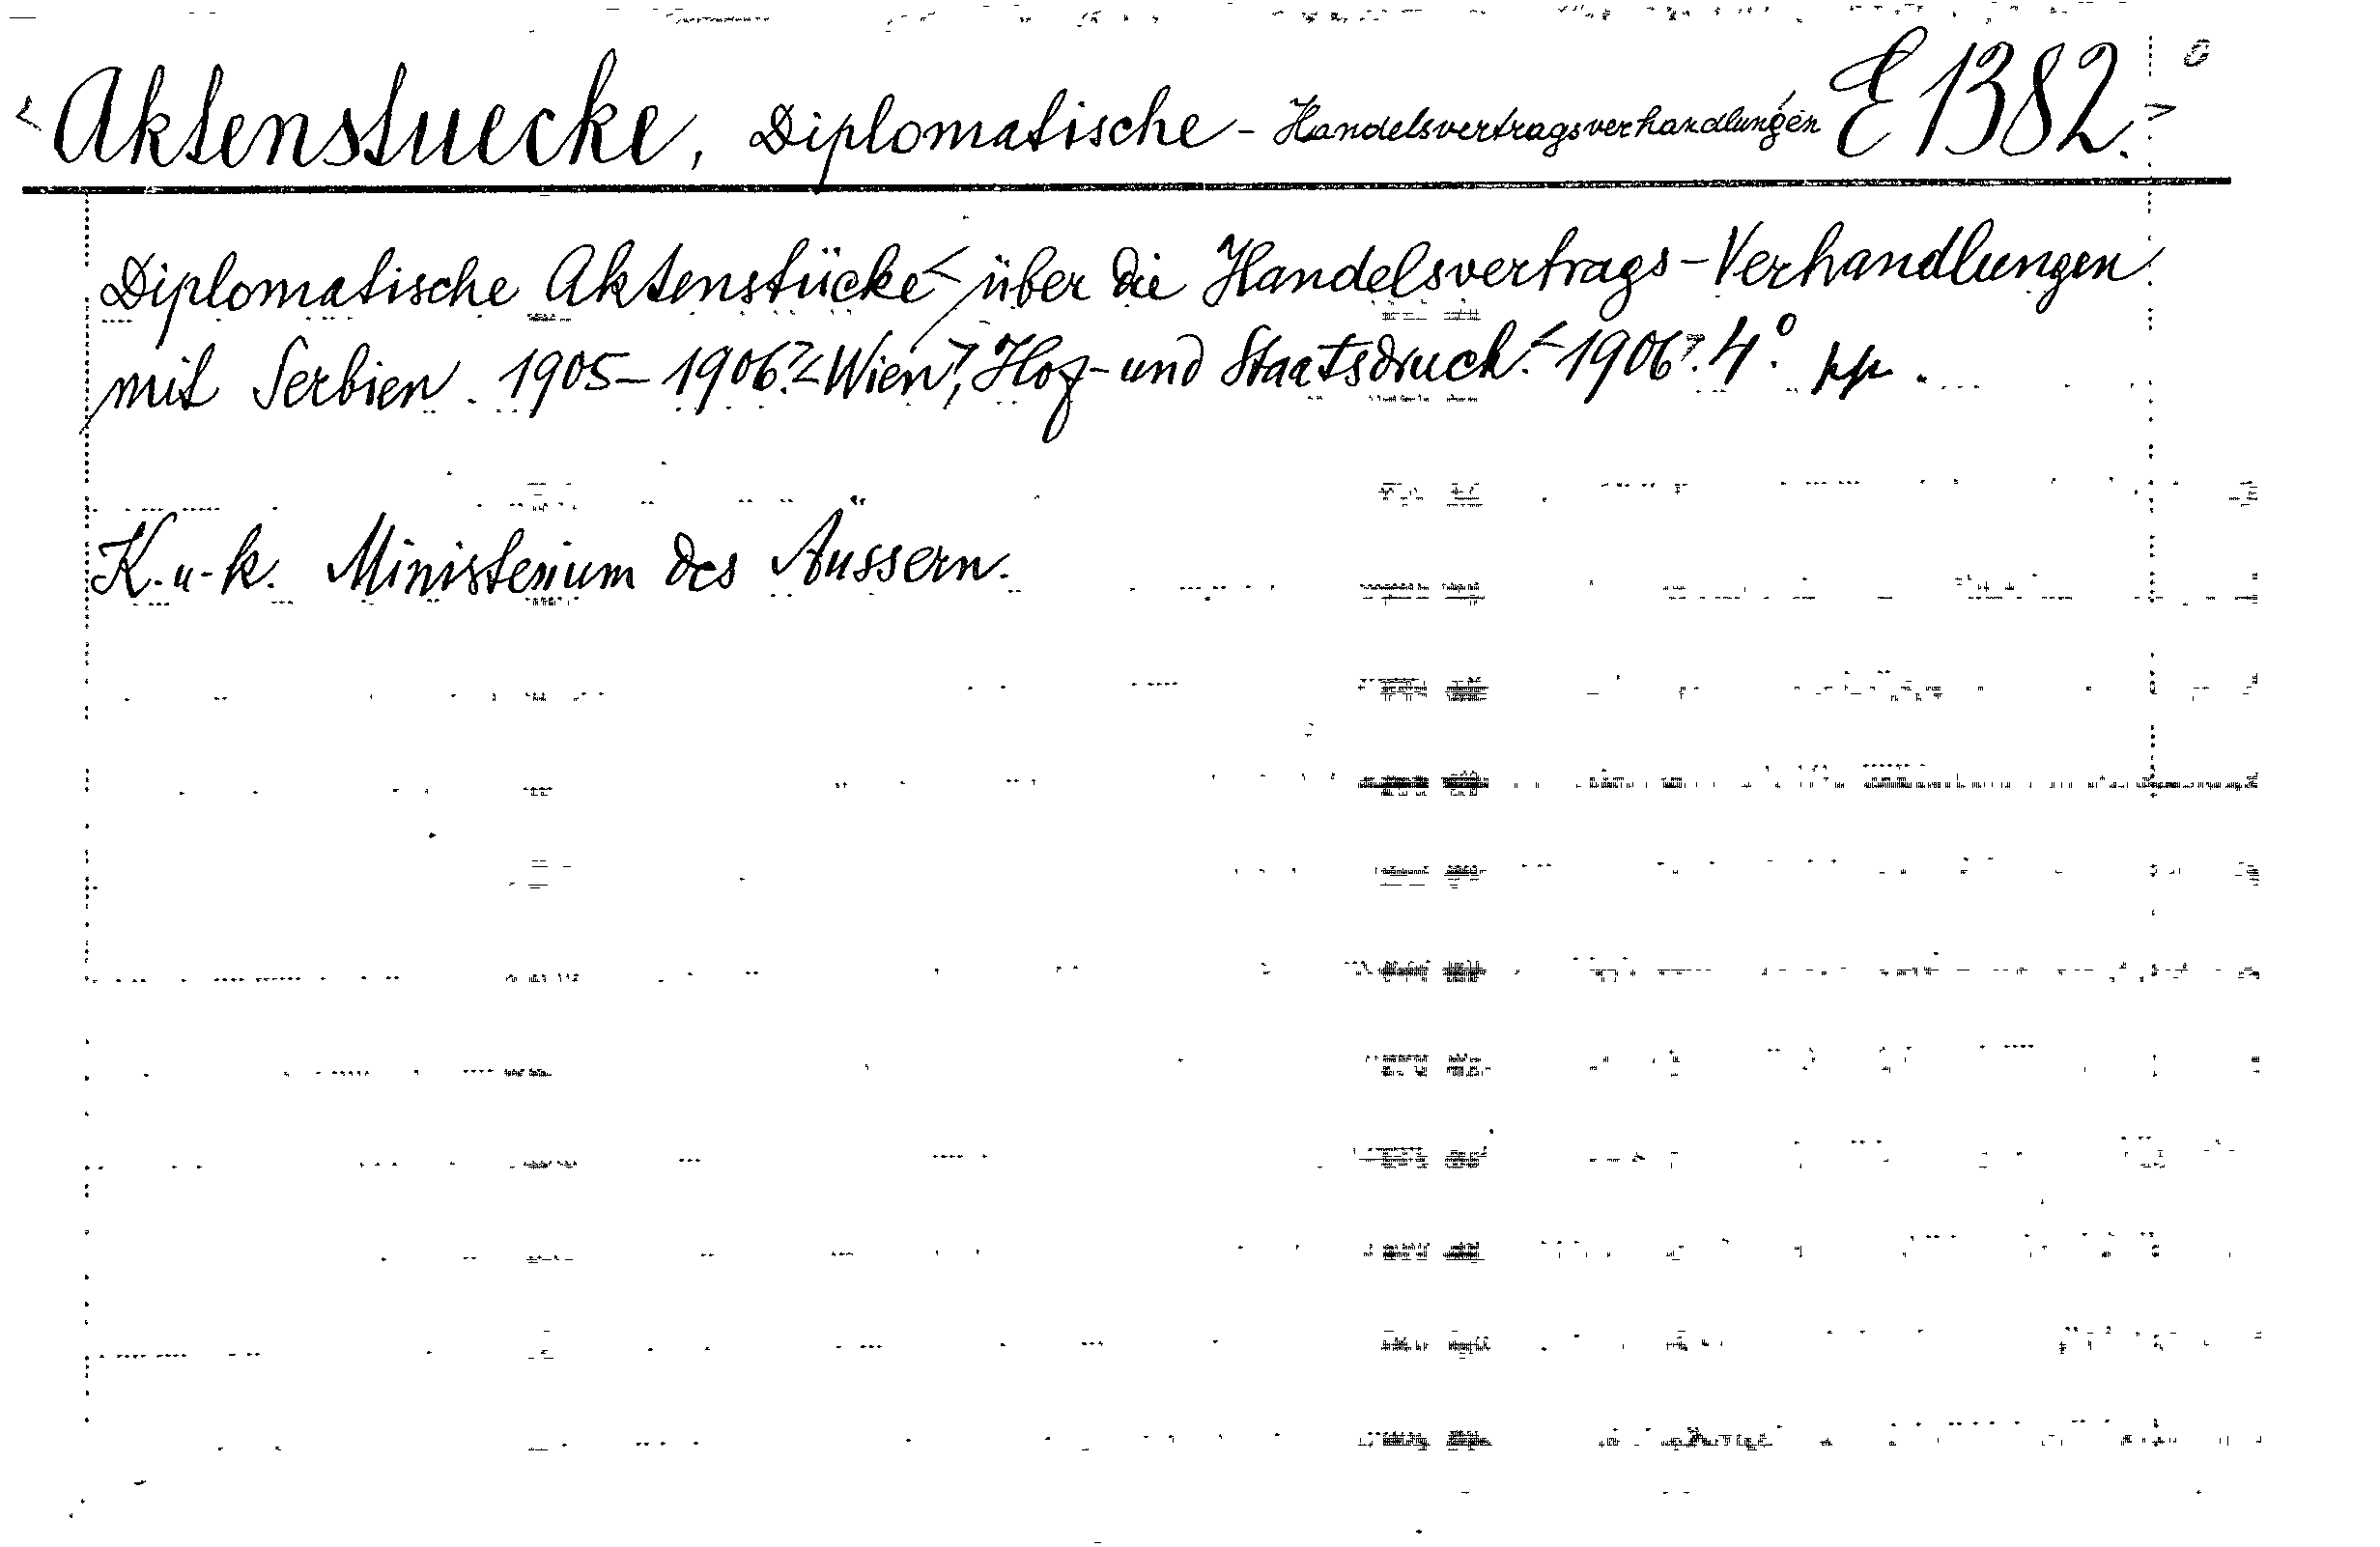 <Aktenstuecke, Diplomatische - Handelsvertragsverhandlungen E 1382.>
Diplomatische Aktenstücke < über die Handelsvertrags-Verhandlungen
mit Serbien 1905-1906.> <Wien>, Hof- und Staatsdruck. <1906>. 4° pp.
K. u. k. Ministerium des Äussern.